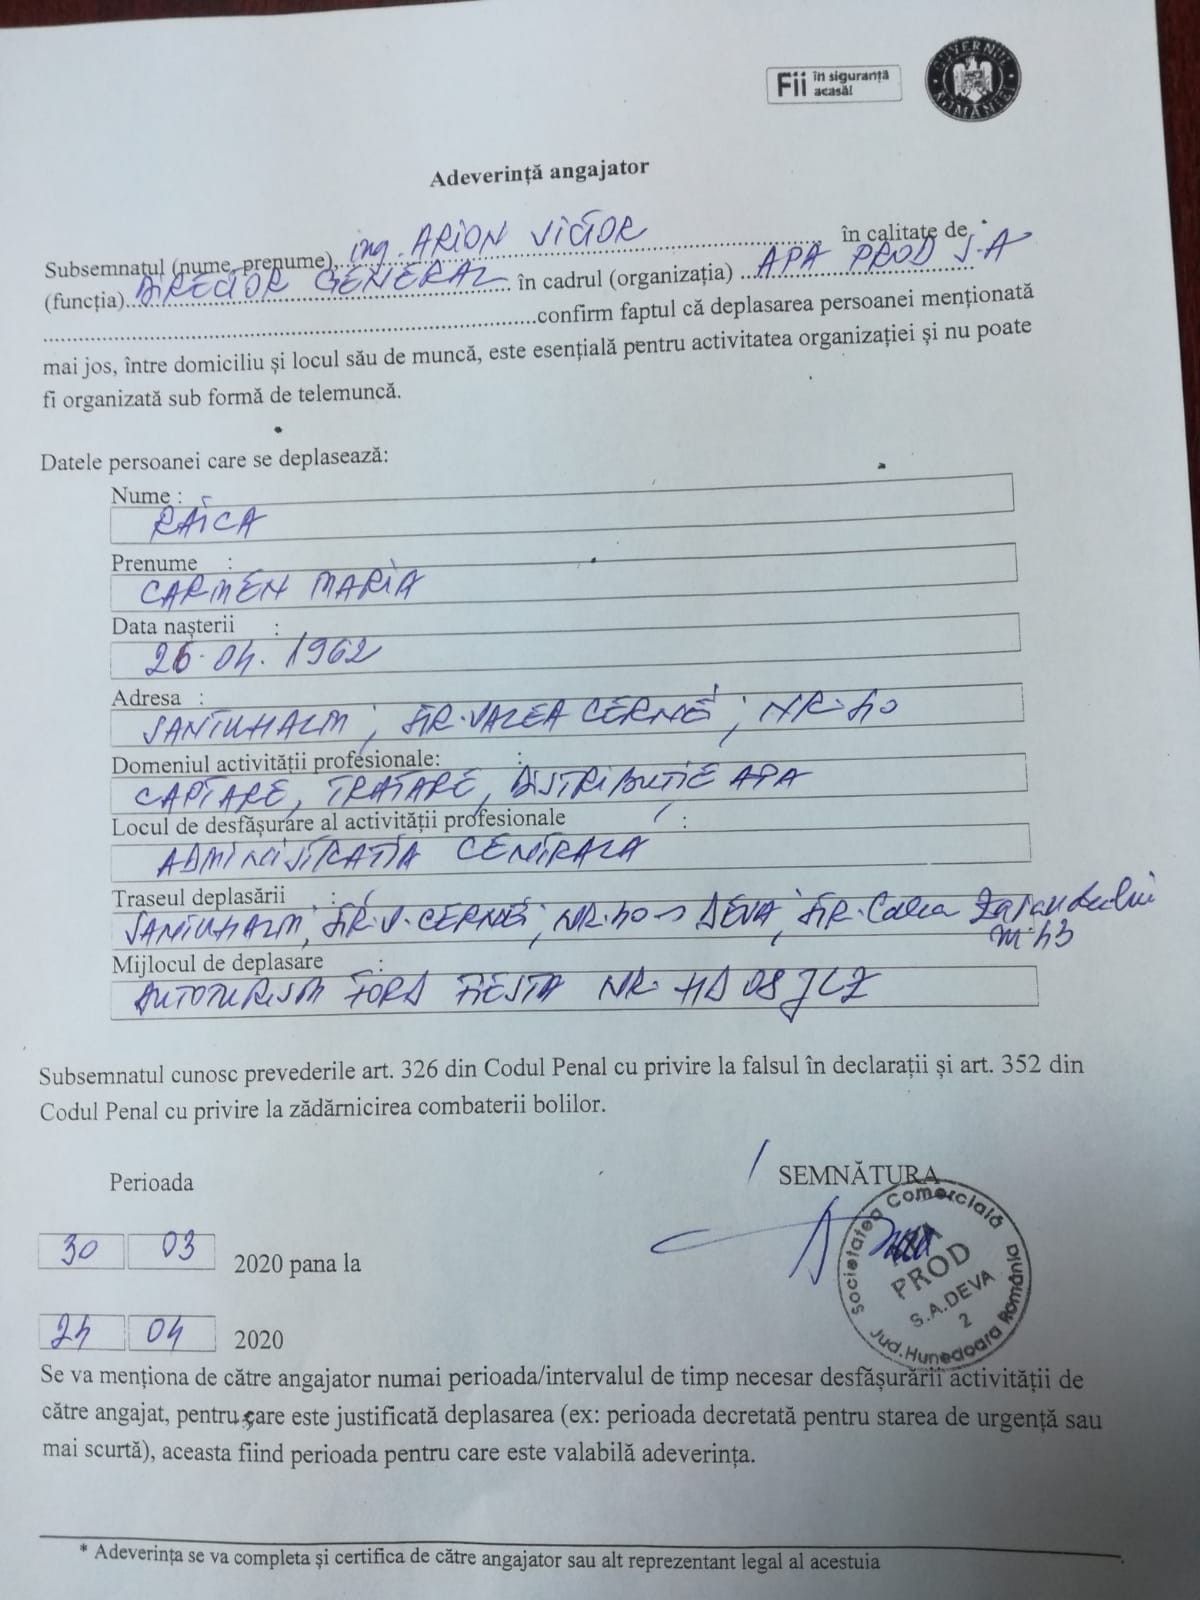 Fii în siguranță
acasă!
GUVERNUL ROMÂNIEI
Adeverință angajator
Subsemnatul (nume, prenume) ing. ARION VICTOR în calitate de
(funcția) DIRECTOR GENERAL în cadrul (organizația) APA PROD S.A
confirm faptul că deplasarea persoanei menționată
mai jos, între domiciliu și locul său de muncă, este esențială pentru activitatea organizației și nu poate
fi organizată sub formă de telemuncă.
Datele persoanei care se deplasează:
Nume :
RAICA
Prenume :
CARMEN MARIA
Data nașterii :
26.04.1962
Adresa :
SANTUHALM, STR. VALEA CERNEI, NR. 40
Domeniul activității profesionale: :
CAPTARE, TRATARE, DISTRIBUTIE APA
Locul de desfășurare al activității profesionale :
ADMINISTRATIA CENTRALA
Traseul deplasării :
SANTUHALM, STR. V. CERNEI, NR. 40 → DEVA, STR. Calea Zarandului
nr. 43
Mijlocul de deplasare :
AUTOTURISM FORD FIESTA NR. HD 08
Subsemnatul cunosc prevederile art. 326 din Codul Penal cu privire la falsul în declarații și art. 352 din
Codul Penal cu privire la zădărnicirea combaterii bolilor.
Perioada
SEMNĂTURA
Societatea Comercială
APA
PROD
S.A. DEVA
2
Jud. Hunedoara România
30 03 2020 pana la
24 04 2020
Se va menționa de către angajator numai perioada/intervalul de timp necesar desfășurării activității de
către angajat, pentru care este justificată deplasarea (ex: perioada decretată pentru starea de urgență sau
mai scurtă), aceasta fiind perioada pentru care este valabilă adeverința.
* Adeverința se va completa și certifica de către angajator sau alt reprezentant legal al acestuia